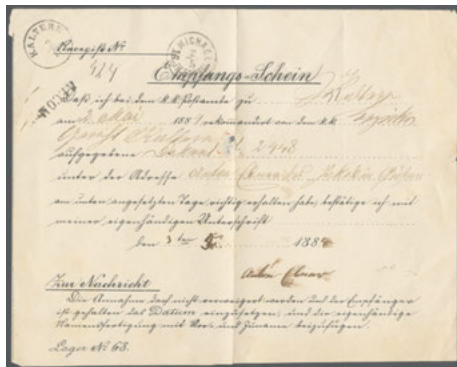 KALTERN
Rezepiße No
ST. MICHAEL
424
Empfangs-Schein
RECOM
Daß ich bei dem k.k. Postamte zu Kaltern
am 2. Mai 1887 rekomandirt von dem k.k. Bezirks
Gericht Kaltern
aufgegebene 2448
unter der Adresse Anton
am unten angesetzten Tage richtig erhalten habe, bestätige ich mit
meiner eigenhändigen Unterschrift
den 3ten 188
Anton Ebner
Zur Nachricht
Die Annahme darf nicht verweigert werden und der Empfänger
ist gehalten das Datum einzusetzen, und die eigenhändige
Namensfertigung mit Vor- und Zuname beizufügen.
Lager No 63.